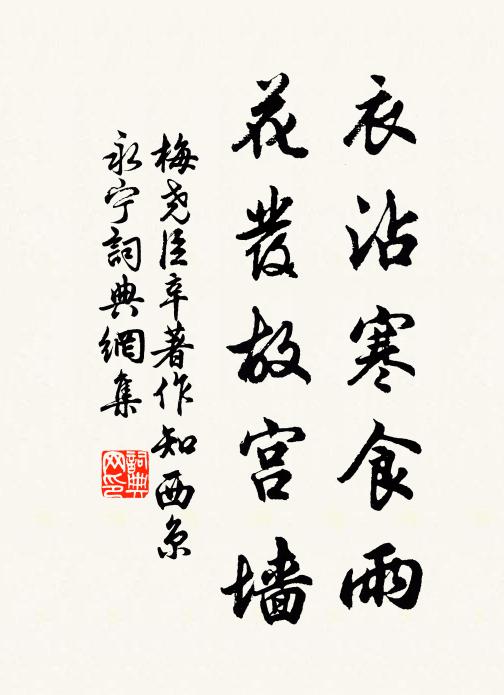 衣沾寒食雨
花發故宫墙
梅尧臣辛著作知西京
永宁詞典網集
詞典
网印